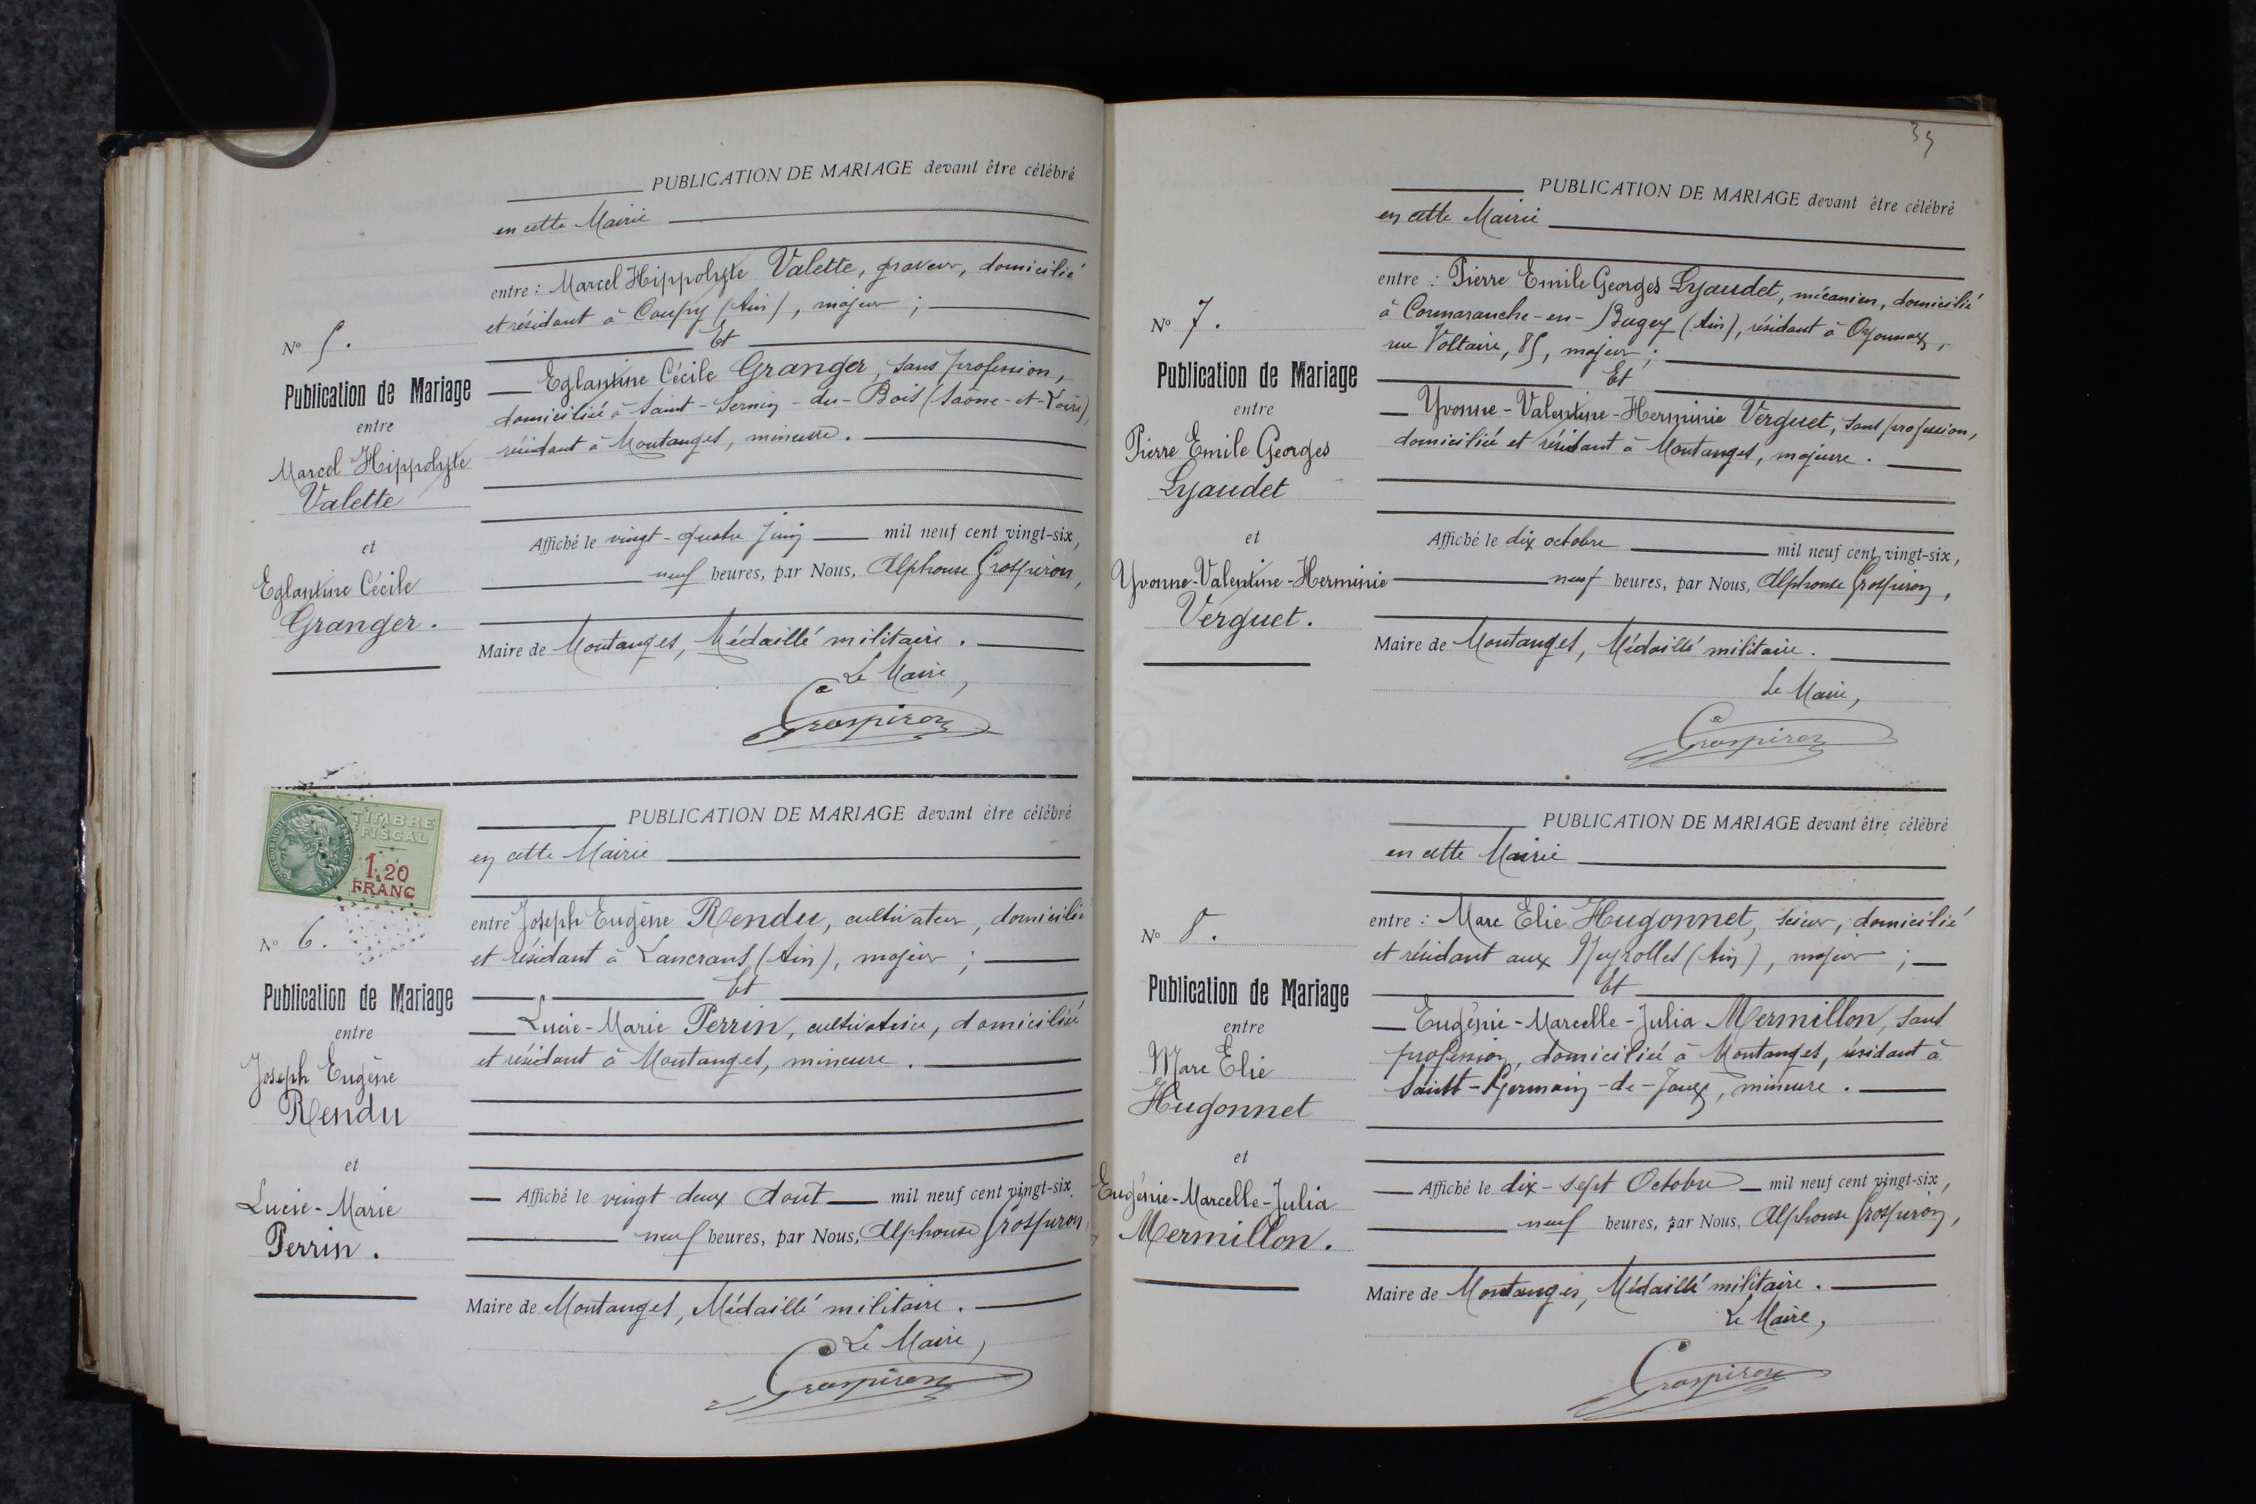 PUBLICATION DE MARIAGE devant être célébré
en cette Mairie
entre : Marcel Hippolyte Valette, graveur, domicilié
et résidant à Coupy (Ain), majeur ;
Et
Eglantine Cécile Granger, sans profession,
domiciliée à Saint-Sernin-du-Bois (Saône-et-Loire),
résidant à Montanges, mineure.
Affiché le vingt-quatre Juin mil neuf cent vingt-six,
neuf heures, par Nous, Alphonse Grospiron,
Maire de Montanges, Médaillé militaire.
Le Maire,
Grospiron
No 5.
Publication de Mariage
entre
Marcel Hippolyte
Valette
et
Eglantine Cécile
Granger.
TIMBRE
FISCAL
1.20
FRANC
PUBLICATION DE MARIAGE devant être célébré
en cette Mairie
entre Joseph Eugène Rendu, cultivateur, domicilié
et résidant à Lancrans (Ain), majeur ;
Et
Lucie-Marie Perrin, cultivatrice, domiciliée
et résidant à Montanges, mineure.
Affiché le vingt-deux Août mil neuf cent vingt-six,
neuf heures, par Nous, Alphonse Grospiron
Maire de Montanges, Médaillé militaire.
Le Maire,
Grospiron
No 6.
Publication de Mariage
entre
Joseph Eugène
Rendu
et
Lucie-Marie
Perrin.
PUBLICATION DE MARIAGE devant être célébré
en cette Mairie
entre : Pierre Emile Georges Lyaudet, mécanicien, domicilié
à Cormaranche-en-Bugey (Ain), résidant à Oyonnax,
rue Voltaire, 85, majeur ;
Et
Yvonne-Valentine-Herminie Verguet, sans profession,
domiciliée et résidant à Montanges, majeure.
Affiché le dix octobre mil neuf cent vingt-six,
neuf heures, par Nous, Alphonse Grospiron,
Maire de Montanges, Médaillé militaire.
Le Maire,
Grospiron
No 7.
Publication de Mariage
entre
Pierre Emile Georges
Lyaudet
et
Yvonne-Valentine-Herminie
Verguet.
PUBLICATION DE MARIAGE devant être célébré
en cette Mairie
entre : Marc Elie Hugonnet, scieur, domicilié
et résidant aux Neyrolles (Ain), majeur ;
Et
Eugénie-Marcelle-Julia Mermillon, sans
profession, domiciliée à Montanges, résidant à
Saint-Germain-de-Joux, mineure.
Affiché le dix-sept Octobre mil neuf cent vingt-six,
neuf heures, par Nous, Alphonse Grospiron,
Maire de Montanges, Médaillé militaire.
Le Maire,
Grospiron
No 8.
Publication de Mariage
entre
Marc Elie
Hugonnet
et
Eugénie-Marcelle-Julia
Mermillon.